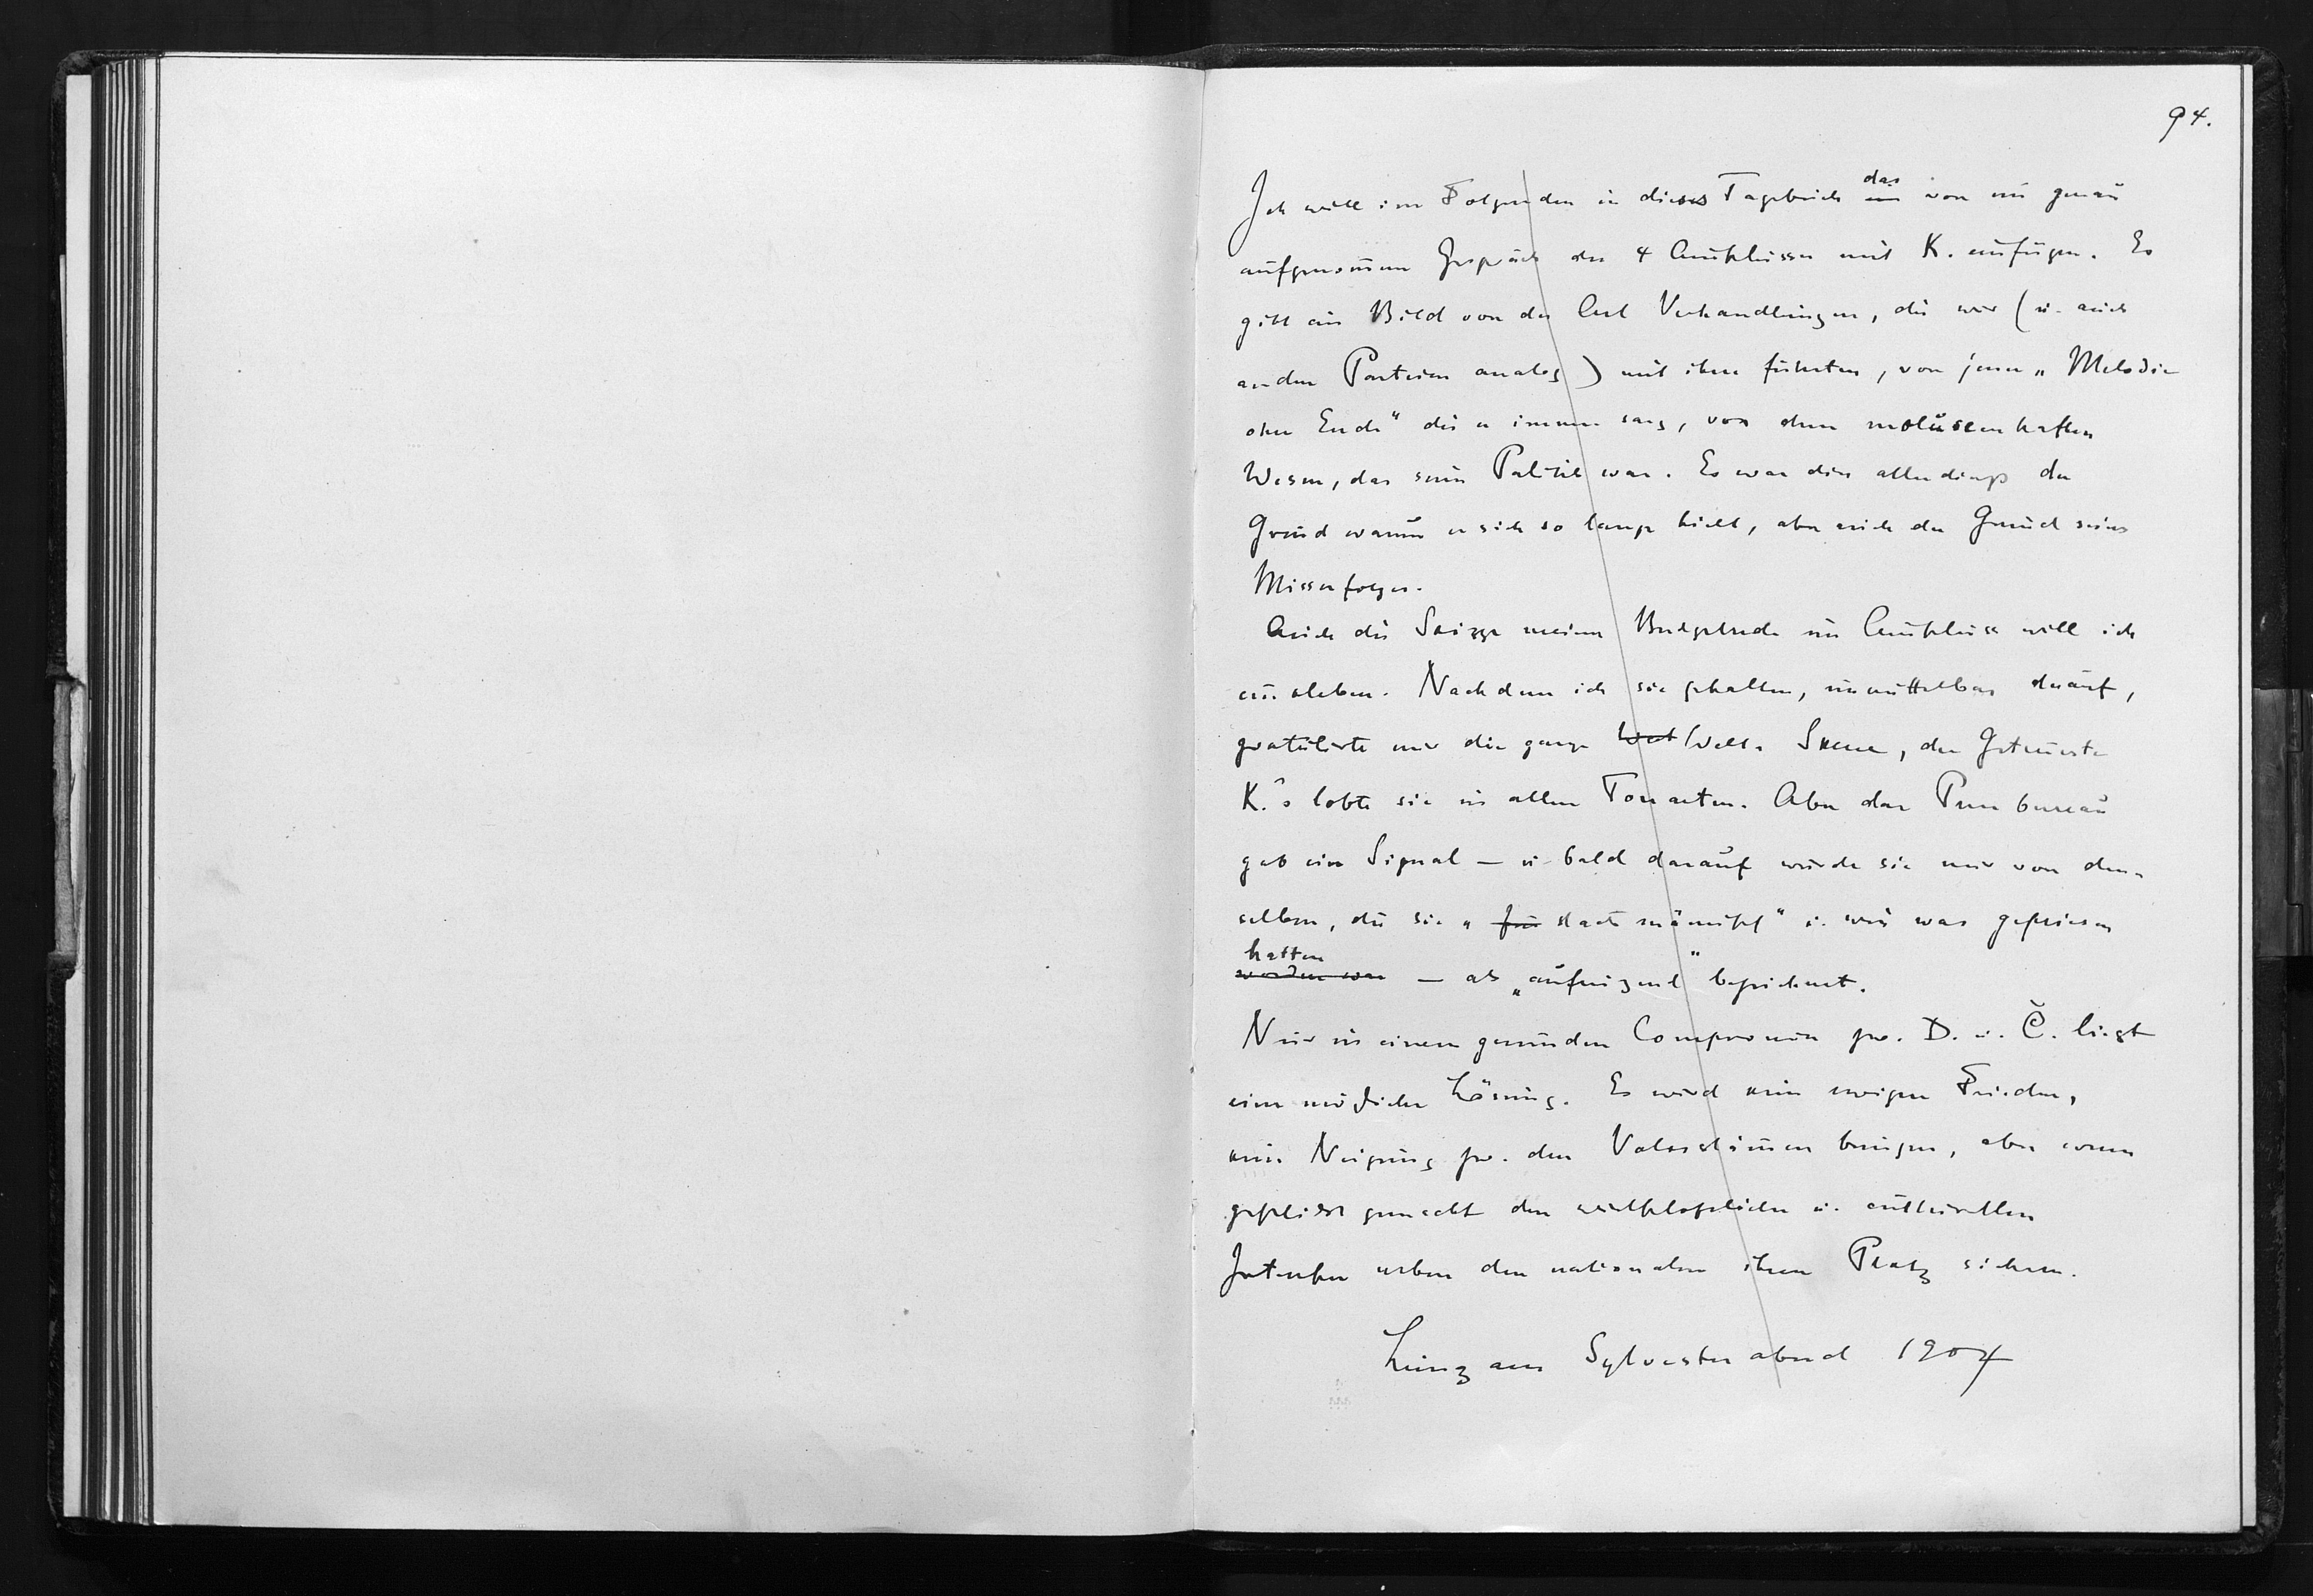 94.
Ich will im Folgenden in dieses Tagebuch das von mir genau
aufgenommene Gespräch der 4 Curie mit K. einfügen. Es
gibt ein Bild von der Art Verhandlungen, die wir (u. auch
andere Parteien analog) mit ihm führten, von jener „Melodie
ohne Ende" die er immer sang, von dem moluscenhaften
Wesen, das seine Politik war. Es war dies allerdings der
Grund warum er sich so lange hielt, aber auch der Grund seines
Misserfolges.
Auch die Skizze meiner Budgetrede im will ich
einkleben. Nachdem ich sie gehalten, unmittelbar darauf,
gratulirte mir die ganze Welt Welt. Skene, der Getreueste
K.'s lobte sie in allen Tonarten. Aber das Pressbureau
gab ein Signal — u. bald darauf wurde sie mir von den-
selben, die sie „für staatsmännisch" u. wie was gepriesen
hatten
worden war — als „aufreizend" bezeichnet.
Nur in einem gesunden Compromiss zw. D. u. Č. liegt
eine mögliche Lösung. Es wird kein ewigen Frieden,
keine Neigung zw. den Volksstämmen bringen, aber wenn
geschickt gemacht den wirthschaftlichen u. culturellen
Interessen neben den nationalen ihren Platz sichern.
Linz am Sylvesterabend 1904